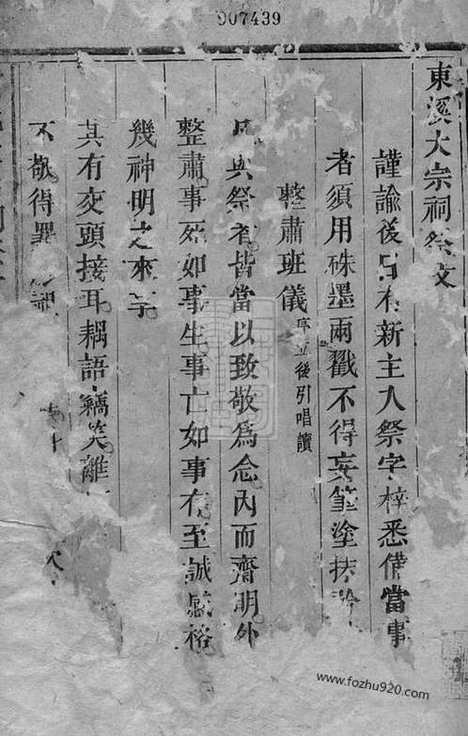 007439
東溪大宗祠祭文
謹諭後日有新主入祭字梓悉備當事
者須用硃墨兩戳不得妄筆塗抹
整肅班儀序立後引唱讀
凡與祭者皆當以致敬爲念內而齋明外
整肅事死如事生事亡如事存至誠感格
幾神明之來享
其有交頭接耳耦語竊笑離
不敬得罪
www.fozhu920.com